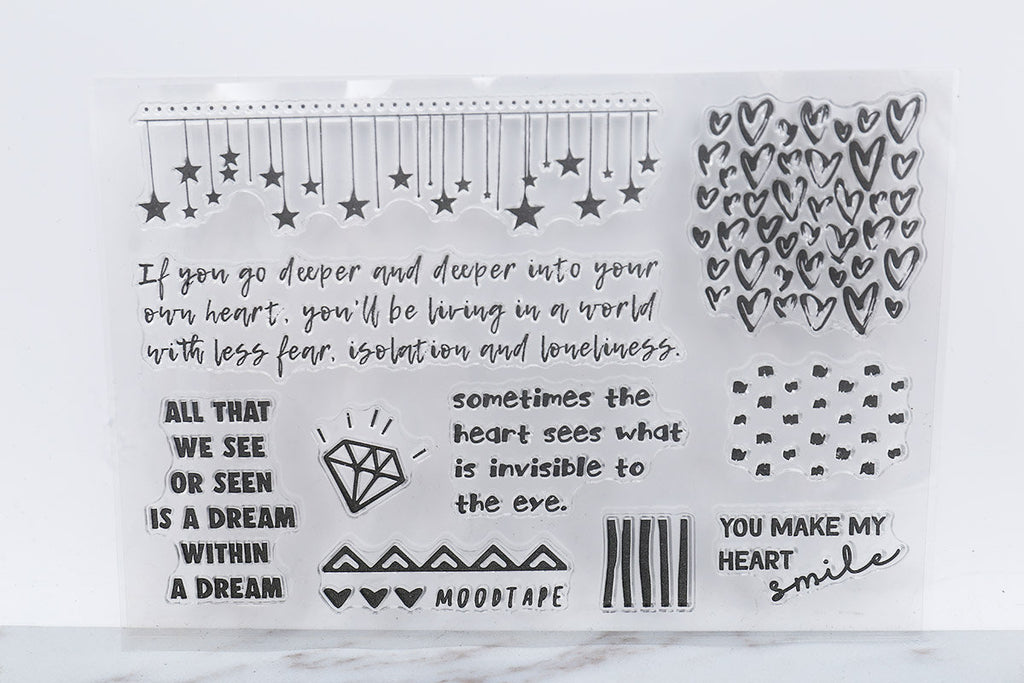 If you go deeper and deeper into your
own heart, you'll be living in a world
with less fear, isolation and loneliness.
ALL THAT
WE SEE
OR SEEN
IS A DREAM
WITHIN
A DREAM
sometimes the
heart sees what
is invisible to
the eye.
MOODTAPE
YOU MAKE MY
HEART
smile